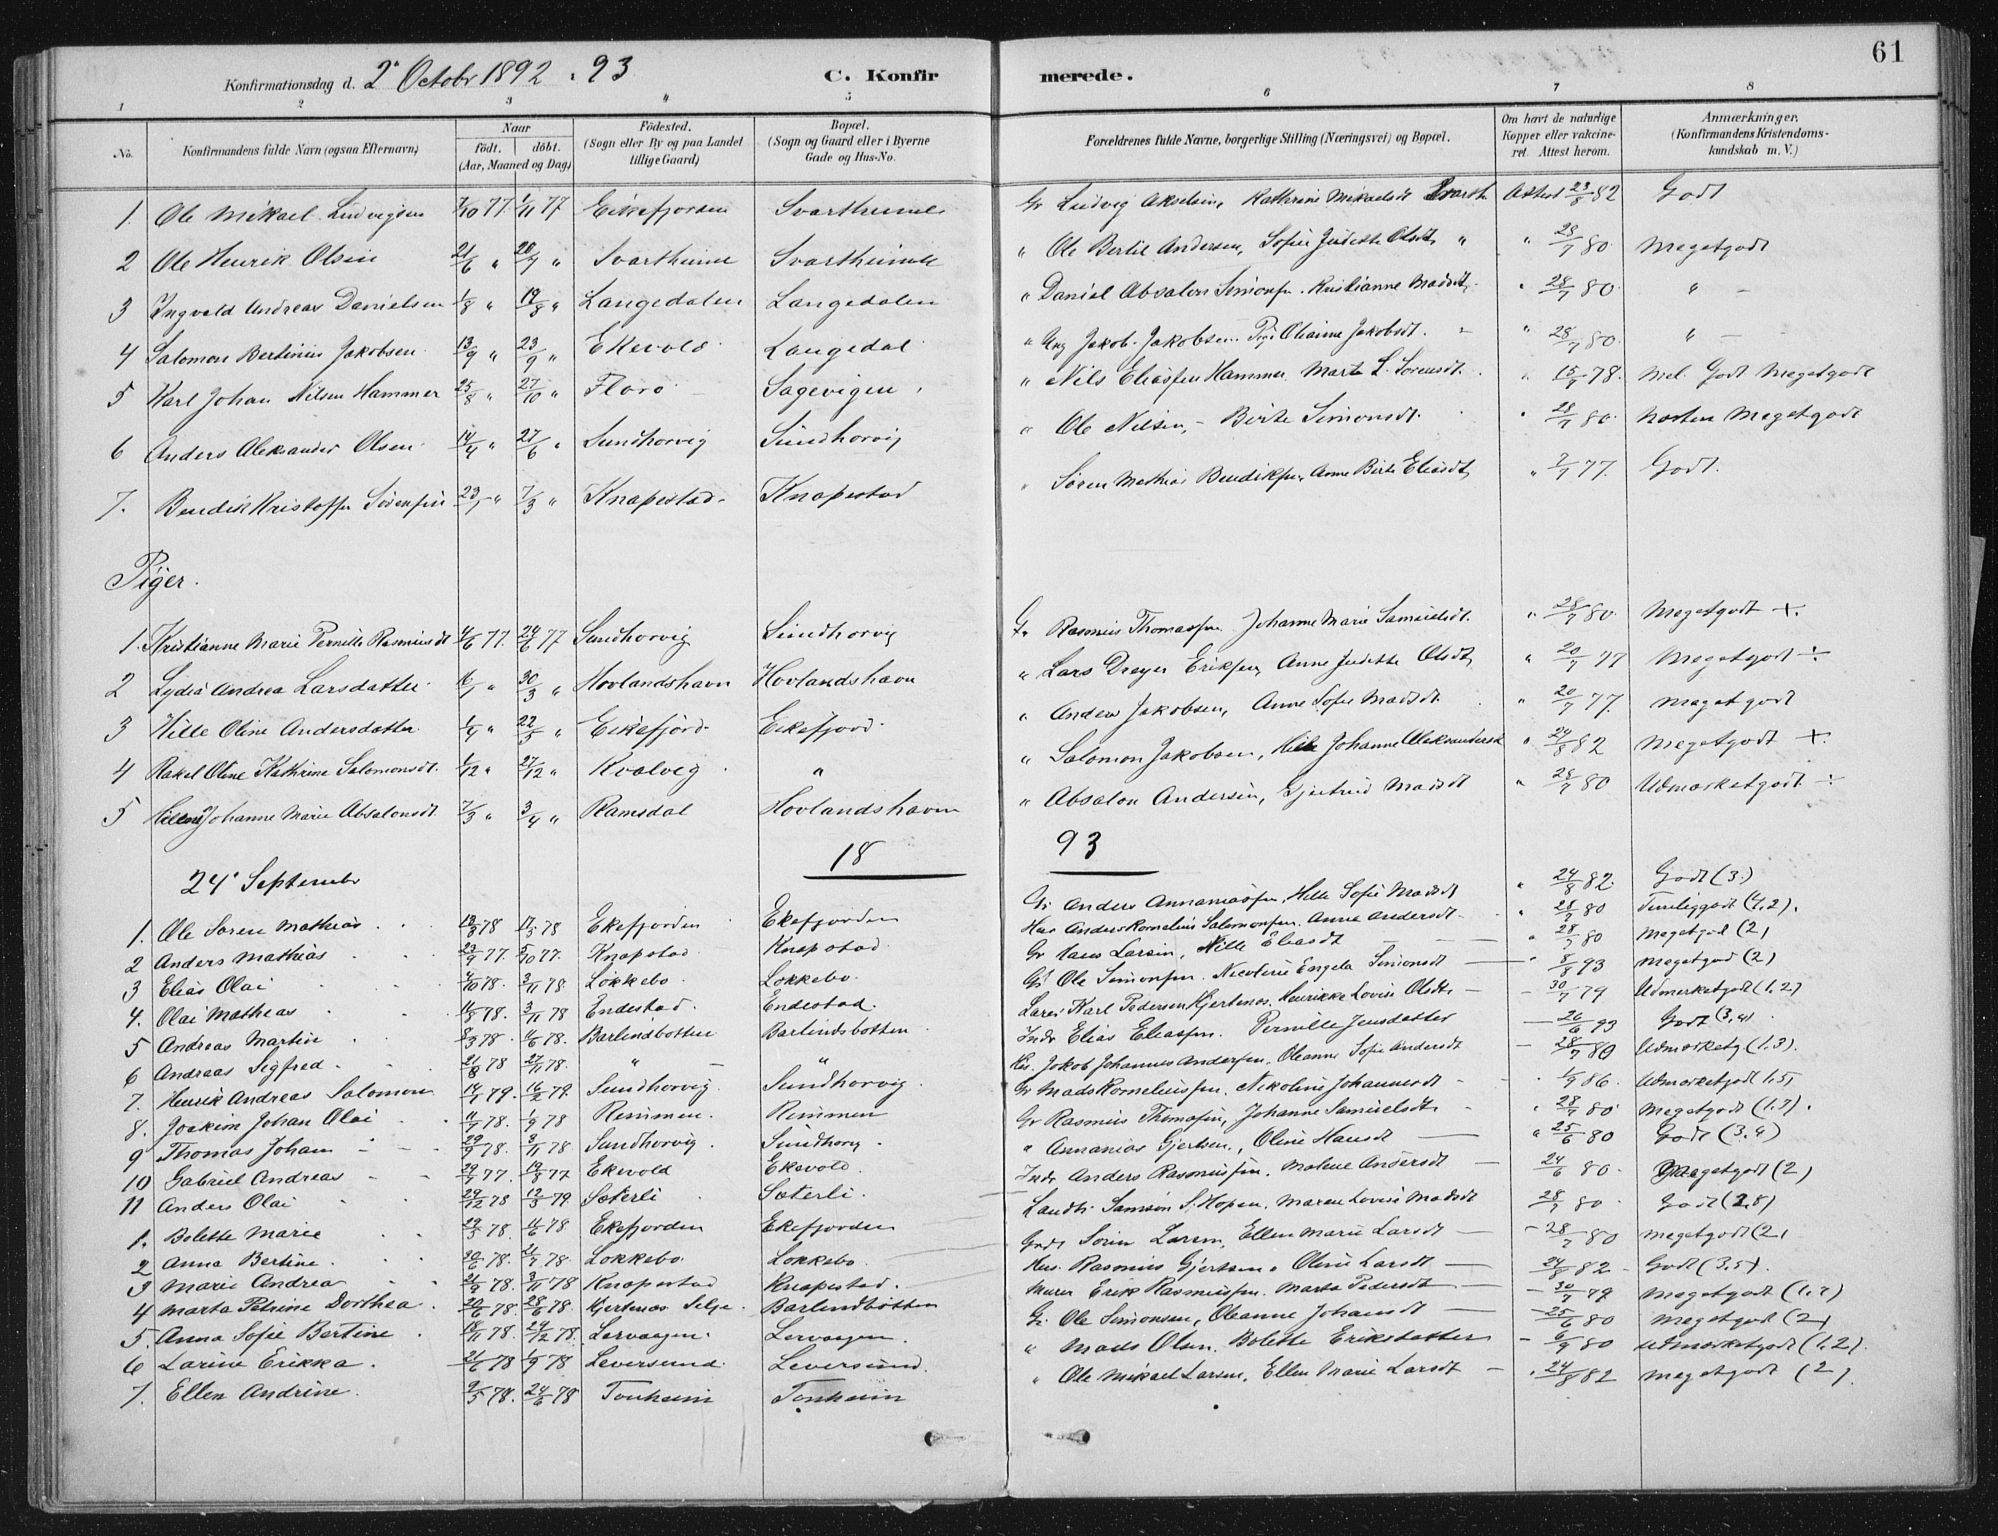 61
Konfirmationsdag d. 2' Octobr 1892 . 93 C. Konfirmerede.
1 2 3 4 5 6 7 8
No. Konfirmandens fulde Navn (ogsaa Efternavn) Naar født. døbt. (Aar, Maaned og Dag) Fødested. (Sogn eller By og paa Landet tillige Gaard) Bopæl. (Sogn og Gaard eller i Byerne Gade og Hus-No. Forældrenes fulde Navne, borgerlige Stilling (Næringsvei) og Bopæl. Om havt de naturlige Kopper eller vakcineret. Attest herom. Anmærkninger. (Konfirmandens Kristendomskundskab m. V.)
1. Ole Mikael Ludvigsen 7/10 77. 77 Eikefjorden Svarthumle Gr Ludvig Akselsen, Kathrine Mikaelsdt Attest 23/8 82 Godt
2 Ole Henrik Olsen 21/6 " 20/7 " Svarthumle Svarthumle " Ole Bertil Andersen, Sofie Judithe Olsdt, " " 28/7 80 Megetgodt
3 Yngvald Andreas Danielsen 1/8 " 19/8 " Langedalen Langedalen " Daniel Absalon Simonsen. Kristianne Madsdt. " 28/7 80 " -
4 Salomon Bertinius Jakobsen. 13/9 " 23/9 " Ekevold Langedal " Ung Jakob Jakobsen. Pige Oleanne Jakobsdt. " 28/7 80. " -
5 Karl Johan Nilsen Hammer 25/8 " 27/10 " Florø Sagevigen " Nils Eliassen Hammer Marte L. Sorensdt. " 15/7 78. Mel. Godt Megetgodt
6 Anders Aleksander Olsen. 14/4 " 27/6 " Sundhorvig Sundhorvig " Ole Nilsen, - Birte Simonsdt. " 28/7 80. Næsten Megetgodt
7. Bendik Kristoffer Sørensen 23/1 " 7/3 " Knapestad Knapestad " Søren Mathias Bendiksen, Anne Birte Eliasdt, " 7/7 77. Godt.
Piger.
1. Kristianne Marie Pernille Rasmusdt 4/6 77. 24/6 77 Sundhorvig Sundhorvig Gr Rasmus Thomassen Johanne Marie Samuelsdt. " 28/7 80. Megetgodt +.
2 Lydia Andrea Larsdatter 6/1 " 30/3 " Hovlandshavn Hovlandshavn " Lars Dreyer Eriksen, Anne Judithe Olsdt, " 20/7 77 Megetgodt ÷
3 Hille Oline Andersdatter 1/4 " 22/5 " Eikefjord Eikefjord. " Anders Jakobsen, Anne Sofie Madsdt. " 20/7 77. Megetgodt
4 Rakel Oline Kathrine Salomonsdt. 1/12 " 27/12 " Kvalvig " " Salomon Jakobsen, Hille Johanne Aleksandersd " 24/8 82 Megetgodt +.
5 Johanne Marie Absalonsdt. 7/3 " 3/4 " Ramsdal Hovlandshavn " Absalon Andersen, Gjertrud Madsdt " 28/7 80 Udmærketgodt ÷
24' Septembr 18 93
1. Ole Søren Mathias 13/3 78 17/5 78 Ekefjorden Ekefjorden Gr Anders Annaniassen, Hille Sofie Madsdt " 24/8 82. Godt (3)
2 Anders Mathias 23/9 77. 5/10 77. Knapstad Knapstad Hus Anders Kornelius Salomonsen. Anne Andersdt. " 28/7 80 Temeliggodt (4,2).
3 Elias Olai 4/10 78. 3/11 78 Løkkebø Løkkebø. Gr Hans Larsen, Nille Eliasdt " 28/7 80 Megetgod (2)
4. Olai Mathias 78. 3/11 78 Endestad. Endestad. Gr Ole Simonsen. Nicoline Engela Simonsdt 8/8 93 Megetgod (2)
5 Andreas Martin 8/3 78. 6/6 78. Barlindbotten Barlindsbotten Lærer Karl Pedersen Hjertenæs. Henrikke Lovise Olsdt. - 30/7 79 Udmerketgodt (1,2)
6 Andreas Sigfred. 21/8 78 27/11 78. " - " Indr Elias Eliassen. Pernille Jensdatter - 26/6 93 Godt (3,4).
7. Henrik Andreas Salomon 14/1 79. 16/2 79. Sundhorvig. Sundhorvig. Hus. Jakob Johannes Andersen. Oleanne Sofie Andersdt - 28/7 80 Udmærketg (1,3).
8. Joakim Johan Olai 11/7 78. 1/9 78 Remmen. Remmen Gr Mads Korneliussen. Nikoline Johannesdt - 1/9 86. Udmærketgodt 1,5)
9 Thomas Johan 29/9 78. 3/11 78 Sundhorvig. Sundhorvig. Gr Rasmus Thomassen, Johanne Samuelsdt. " 28/7 80. Megetgodt (1,7).
10 Gabriel Andreas 29/7 77. 19/8 77 Ekevold Ekevold. " Annanias Gjertsen, Oline Hansdt " 25/6 80 Godt (3,4)
11 Anders Olai 29/12 78 12/3 79. Sæterli Sæterli. Indr Anders Rasmussen. Malene Andersdt 24/6 80. Megetgodt (2)
1. Bolette Marie 29/3 78. 4/6 78 Ekefjorden Ekefjorden Landh. Samson S. Hopen. Maren Lovise Madsdt 28/7 80 Godt (2,8)
2 Anna Bertine. 30/6 78. 21/7 78. Løkkebø. Løkkebø. Søren Larsen, Ellen Marie Larsdt - 28/7 80 Megetgodt (2)
3 Marie Andrea 21/9 78. 3/11 78 Knapestad Knapestad. Hus. Rasmus Gjertsen. Oline Larsdt 24/8 82 - Godt (3,5).
4 Marta Petrine Dorthea. 20/6 78. 28/6 78. Hjertenæs Selje. Barlindbotten Murer Erik Rasmussen. Marta Pedersdt - 30/7 79 Megetgodt (1,7)
5. Anna Sofie Bertine 18/11 78. 29/12 78. Lervaagen. Lervaagen. Gr. Ole Simonsen, Oleanne Johansdt - 25/6 80 Megetgod (2)
6 Larine Erikka. 21/6 78 1/9 78 Leversund. Leversund. " Mads Olsen. Bolette Eriksdatter - 6/9 80 Udmærketgodt (1,2).
7. Ellen Andrine. 9/5 78. 24/6 78 Tonheim Tonheim " Ole Mikael Larsen, Ellen Marie Larsdt - 24/8 82 Megetgodt (2).